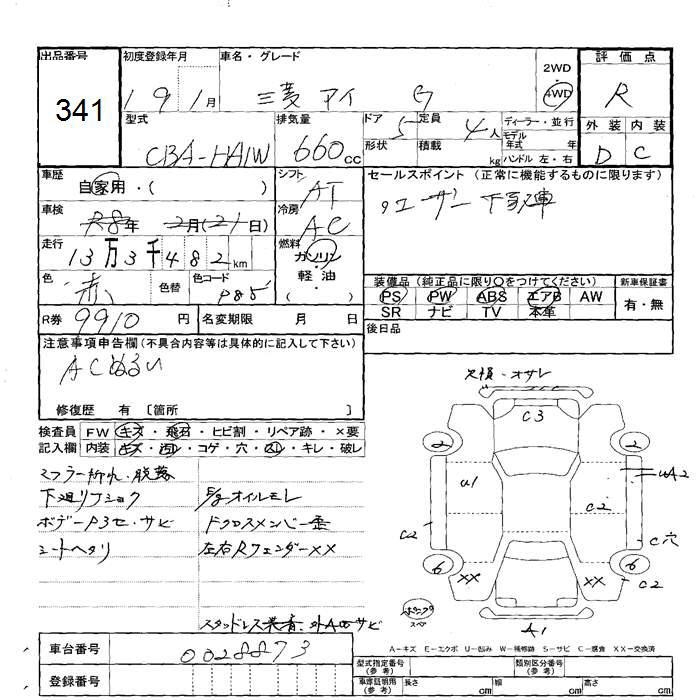 出品番号 初度登録年月 車名・グレード 2WD 4WD 評価点
341 19 1月 三菱 アイ G R
型式 排気量 ドア 定員 ディーラー・並行 外装 内装
CBA-HA1W 660cc 5 4人 モデル年式 年 D C
形状 積載 kg ハンドル 左・右
車歴 自家用・( ) シフト AT セールスポイント (正常に機能するものに限ります)
車検 R8年 2月(21日) 冷房 AC
走行 13万3千482km 燃料 ガソリン
軽・油
色 赤 色替 色コード P85 ( )
装備品 (純正品に限り○をつけてください) 新車保証書
PS PW ABS エアB AW 有・無
SR ナビ TV 本革
R券 9910円 名変期限 月 日 後日品
注意事項申告欄 (不具合内容等は具体的に記入して下さい)
ACぬるい
修復歴 有 〔箇所 〕
検査員 FW キズ・飛石・ヒビ割・リペア跡・×要
記入欄 内装 キズ・汚レ・コゲ・穴・凹・キレ・破レ
マフラー折れ・脱落
下廻リフショク E/gオイルモレ
ボデーP3セ・サビ ドクロスメンバー歪
シートヘタリ 左右RフェンダーXX
スタッドレス装着、外AWサビ
欠損・オサレ
C3
2 2
U1 UA2
C2
C2 C穴
6 6
XX XX C2
A1
A-キズ E-エクボ U-凹み W-補修跡 S-サビ C-腐食 XX-交換済
車台番号 0028873
登録番号
型式指定番号 (参考) 類別区分番号 (参考)
車庫証明用 (参考) 長さ cm 幅 cm 高さ cm